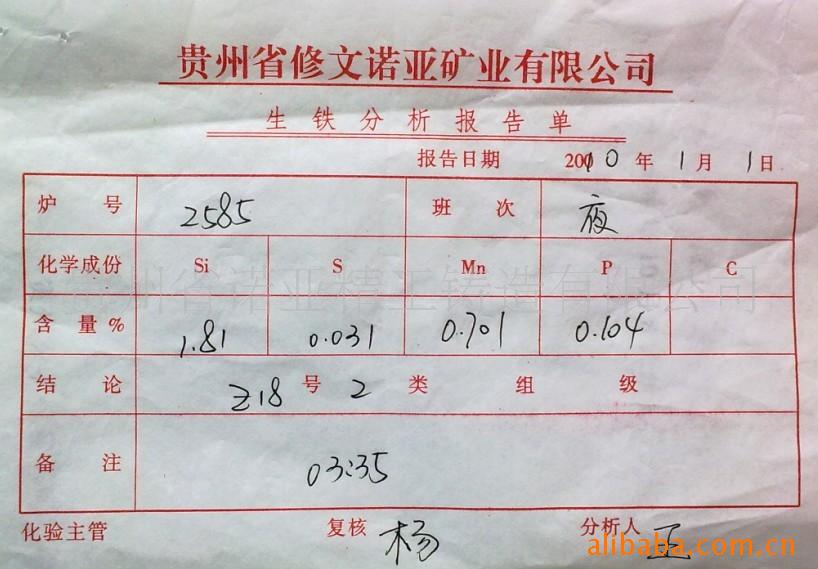 贵州省修文诺亚矿业有限公司
生铁分析报告单
报告日期 2010 年 1 月 1 日
炉号 2585 班次 夜
化学成份 Si S Mn P C
贵州省诺亚精工铸造有限公司
含量% 1.81 0.031 0.701 0.104
结论 Z18 号 2 类 组 级
备注 03:35
化验主管 复核 杨 分析人
alibaba.com.cn